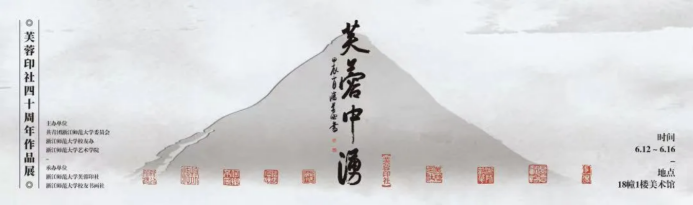 芙蓉印社四十周年作品展
主办单位
共青团浙江师范大学委员会
浙江师范大学校友办
浙江师范大学艺术学院
承办单位
浙江师范大学芙蓉印社
浙江师范大学校友书画社
芙蓉中涌
【芙蓉印社】
时间
6.12 – 6.16
地点
18幢1楼美术馆